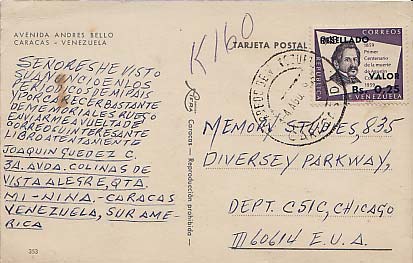 AVENIDA ANDRES BELLO
CARACAS - VENEZUELA
K160
TARJETA POSTAL
SEÑORES HE VISTO
SU ANUNCIO EN LOS
PERIODICOS DE MI PAIS
Y POR CARECER BASTANTE
DE MEMORIA LES RUEGO
ENVIARME A VUELTA DE
CORREO SU INTERESANTE
LIBRO ATENTAMENTE
JOAQUIN GUEDEZ C.
3A. AVDA. COLINAS DE
VISTA ALEGRE, QTA.
MI-NINA.-CARACAS
VENEZUELA, SUR AME-
RICA
353
Caracas - Reproducción prohibida
RESELLADO
CORREOS
1859 1959
Primer
Centenario
de la muerte
VALOR
Bs. 0,25
VENEZUELA
MEMORY STUDIES, 835
DIVERSEY PARKWAY,
DEPT. C51C, CHICAGO
Ill 60614 E.U.A.